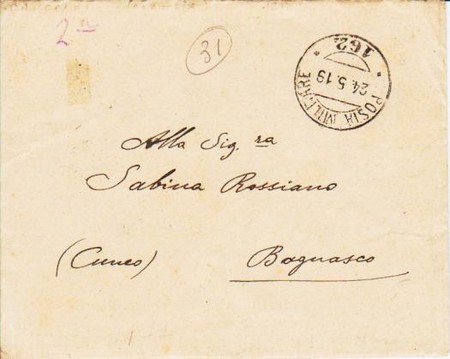 2ª
31
POSTA MILITARE
162
24.5.19
Alla Sig.ra
Sabina Rossiano
(Cuneo) Bagnasco